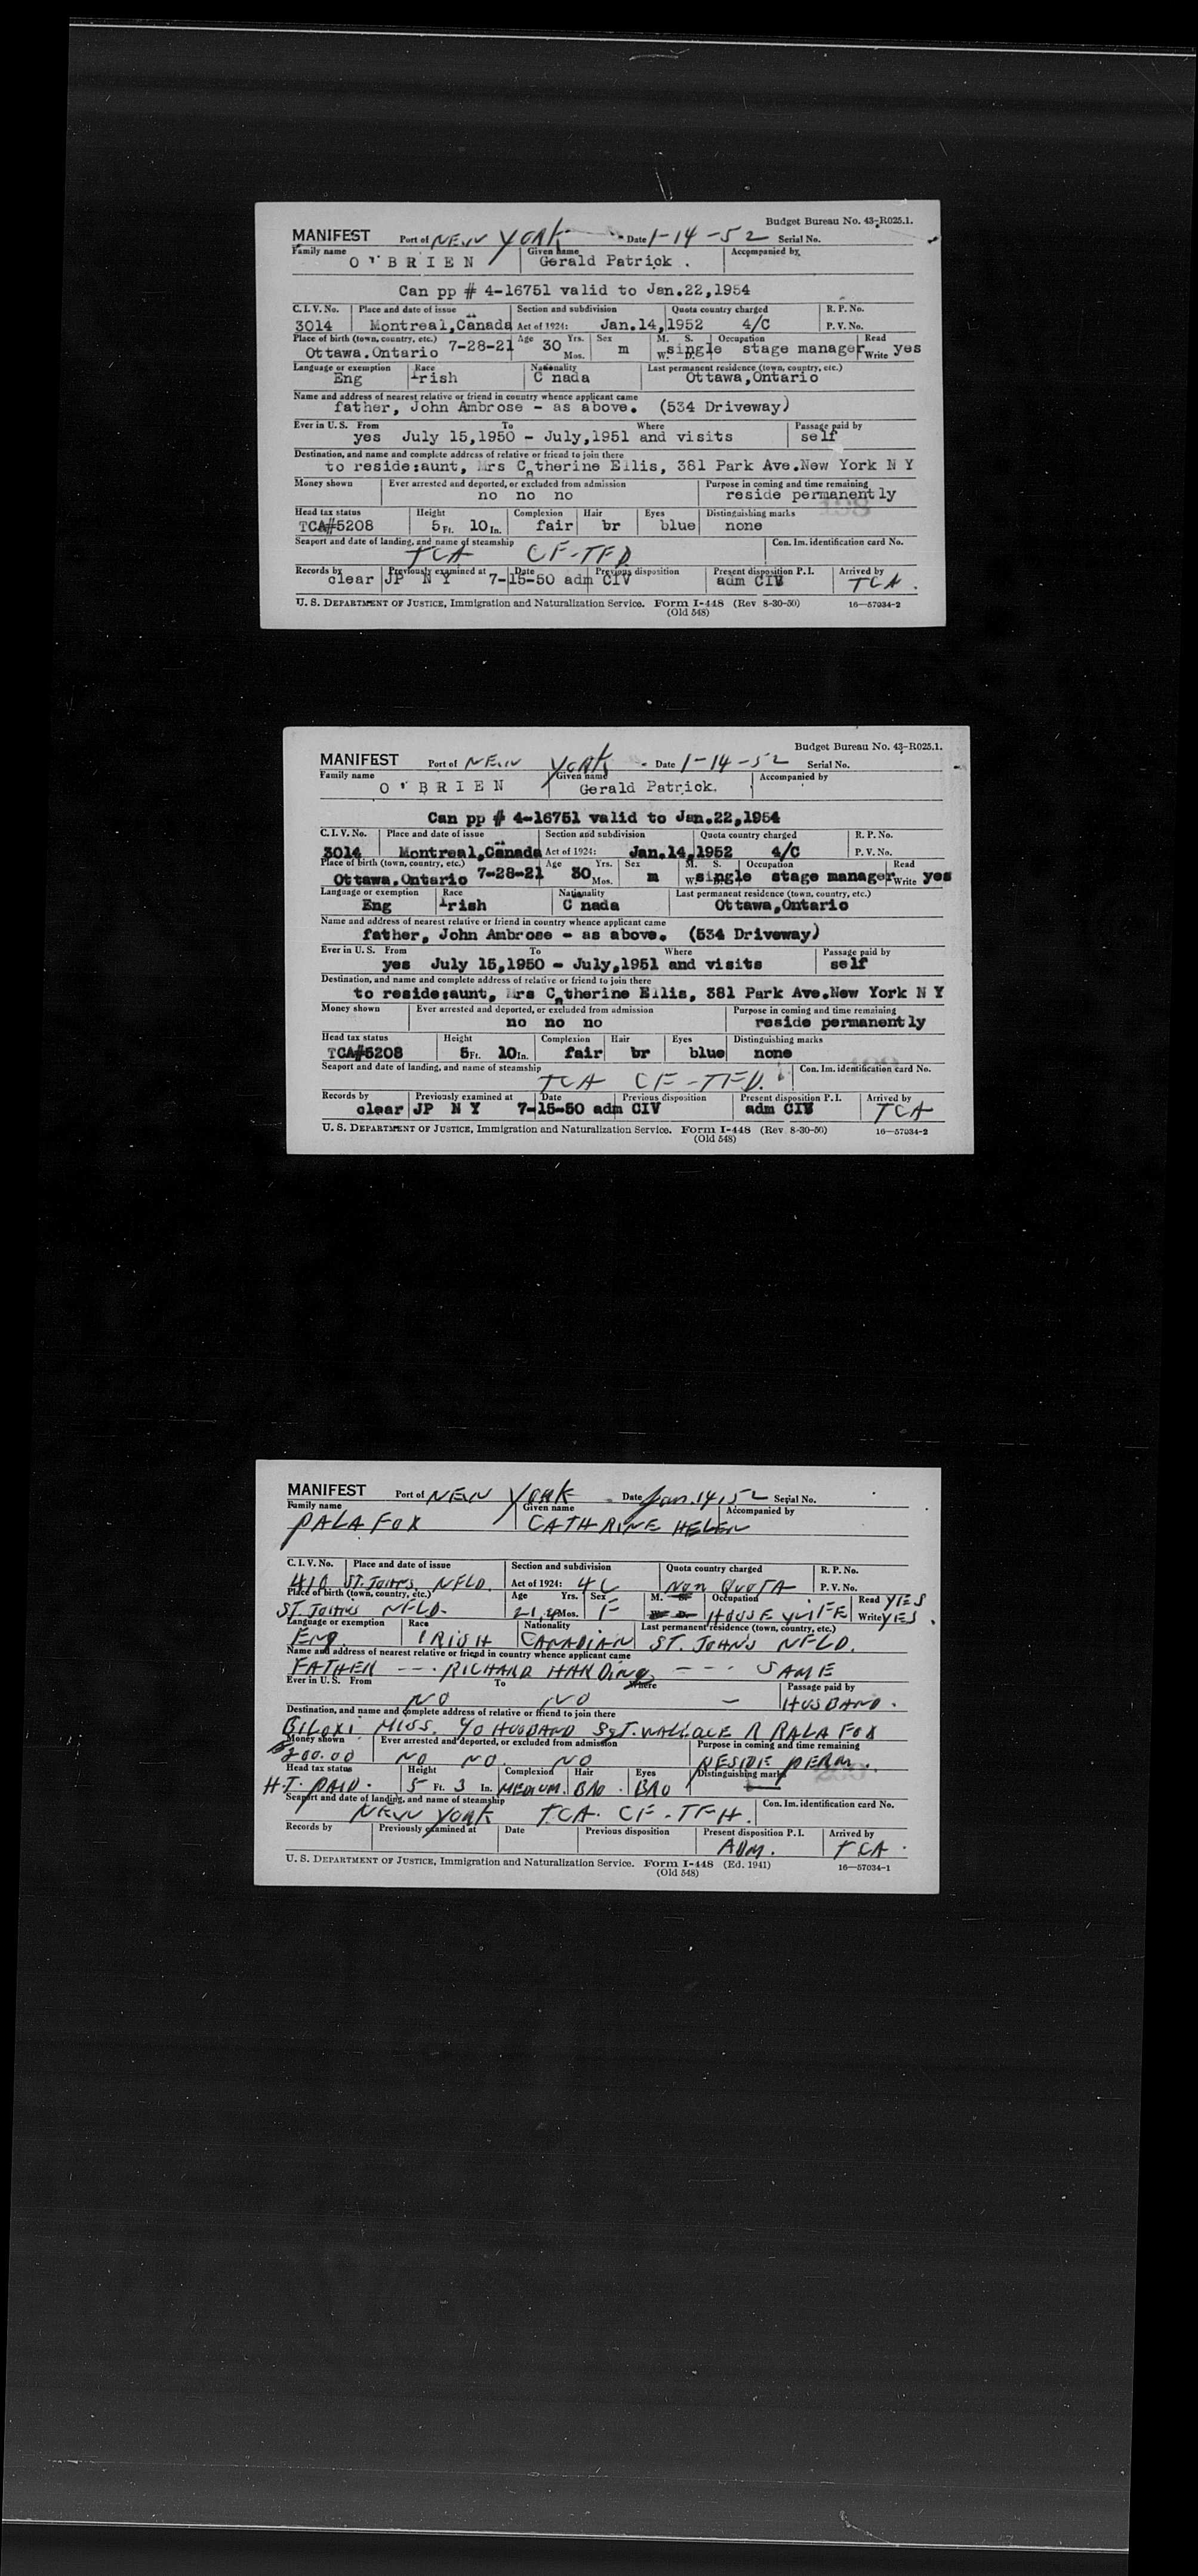 Budget Bureau No. 43-R025.1.
MANIFEST Port of NEW YORK Date 1-14-52 Serial No.
Family name Given name Accompanied by
O'BRIEN Gerald Patrick.
Can pp # 4-16751 valid to Jan.22,1954
C. I. V. No. Place and date of issue Section and subdivision Quota country charged R. P. No.
3014 Montreal,Canada Act of 1924: Jan.14,1952 4/C P. V. No.
Place of birth (town, country, etc.) Age Yrs. Sex M. S. Occupation Read
Ottawa.Ontario 7-28-21 30 Mos. m W. single D. stage manager Write yes
Language or exemption Race Nationality Last permanent residence (town, country, etc.)
Eng Irish C nada Ottawa,Ontario
Name and address of nearest relative or friend in country whence applicant came
father, John Ambrose - as above. (534 Driveway)
Ever in U. S. From To Where Passage paid by
yes July 15,1950 - July,1951 and visits self
Destination, and name and complete address of relative or friend to join there
to reside:aunt, Mrs Catherine Ellis, 381 Park Ave.New York N Y
Money shown Ever arrested and deported, or excluded from admission Purpose in coming and time remaining
no no no reside permanently
Head tax status Height Complexion Hair Eyes Distinguishing marks
TCA#5208 5 Ft. 10 In. fair br blue none
Seaport and date of landing, and name of steamship Con. Im. identification card No.
TCA CF-TFD
Records by Previously examined at Date Previous disposition Present disposition P. I. Arrived by
clear JP N Y 7-15-50 adm CIV adm CIV TCA.
U. S. DEPARTMENT OF JUSTICE, Immigration and Naturalization Service. Form I-448 (Rev 8-30-50) 16—57034-2
(Old 548)
Budget Bureau No. 43-R025.1.
MANIFEST Port of NEW YORK Date 1-14-52 Serial No.
Family name Given name Accompanied by
O'BRIEN Gerald Patrick.
Can pp # 4-16751 valid to Jan.22,1954
C. I. V. No. Place and date of issue Section and subdivision Quota country charged R. P. No.
3014 Montreal,Canada Act of 1924: Jan.14,1952 4/C P. V. No.
Place of birth (town, country, etc.) Age Yrs. Sex M. S. Occupation Read
Ottawa,Ontario 7-28-21 30 Mos. m W. single stage manager Write yes
Language or exemption Race Nationality Last permanent residence (town, country, etc.)
Eng Irish C nada Ottawa,Ontario
Name and address of nearest relative or friend in country whence applicant came
father, John Ambrose - as above. (534 Driveway)
Ever in U. S. From To Where Passage paid by
yes July 15,1950 - July,1951 and visits self
Destination, and name and complete address of relative or friend to join there
to reside:aunt, Mrs Catherine Ellis, 381 Park Ave.New York N Y
Money shown Ever arrested and deported, or excluded from admission Purpose in coming and time remaining
no no no reside permanently
Head tax status Height Complexion Hair Eyes Distinguishing marks
TCA#5208 5 Ft. 10 In. fair br blue none
Seaport and date of landing, and name of steamship Con. Im. identification card No.
TCA CF-TFD.
Records by Previously examined at Date Previous disposition Present disposition P. I. Arrived by
clear JP N Y 7-15-50 adm CIV adm CIV TCA
U. S. DEPARTMENT OF JUSTICE, Immigration and Naturalization Service. Form I-448 (Rev 8-30-50) 16—57034-2
(Old 548)
MANIFEST Port of NEW YORK Date Jan. 14, 52 Serial No.
Family name Given name Accompanied by
PALAFOX CATHRINE HELEN
C. I. V. No. Place and date of issue Section and subdivision Quota country charged R. P. No.
ST. JOHNS NFLD. Act of 1924: 4C NON QUOTA P. V. No.
Place of birth (town, country, etc.) Age Yrs. Sex M. S. Occupation Read YES
ST. JOHNS NFLD. 21 Mos. F W. D. HOUSE WIFE Write YES.
Language or exemption Race Nationality Last permanent residence (town, country, etc.)
ENG. IRISH CANADIAN ST. JOHNS NFLD.
Name and address of nearest relative or friend in country whence applicant came
FATHER --- RICHARD HARDING --- SAME
Ever in U. S. From To Where Passage paid by
NO NO — HUSBAND.
Destination, and name and complete address of relative or friend to join there
BILOXI MISS. C/O HUSBAND SGT. WALLACE R PALAFOX
Money shown Ever arrested and deported, or excluded from admission Purpose in coming and time remaining
200.00 NO NO NO RESIDE PERM.
Head tax status Height Complexion Hair Eyes Distinguishing marks
H.T. PAID. 5 Ft. 3 In. MEDIUM. BRO. BRO —
Seaport and date of landing, and name of steamship Con. Im. identification card No.
NEW YORK TCA. CF-TFH.
Records by Previously examined at Date Previous disposition Present disposition P. I. Arrived by
ADM. TCA.
U. S. DEPARTMENT OF JUSTICE, Immigration and Naturalization Service. Form I-448 (Ed. 1941) 16—57034-1
(Old 548)